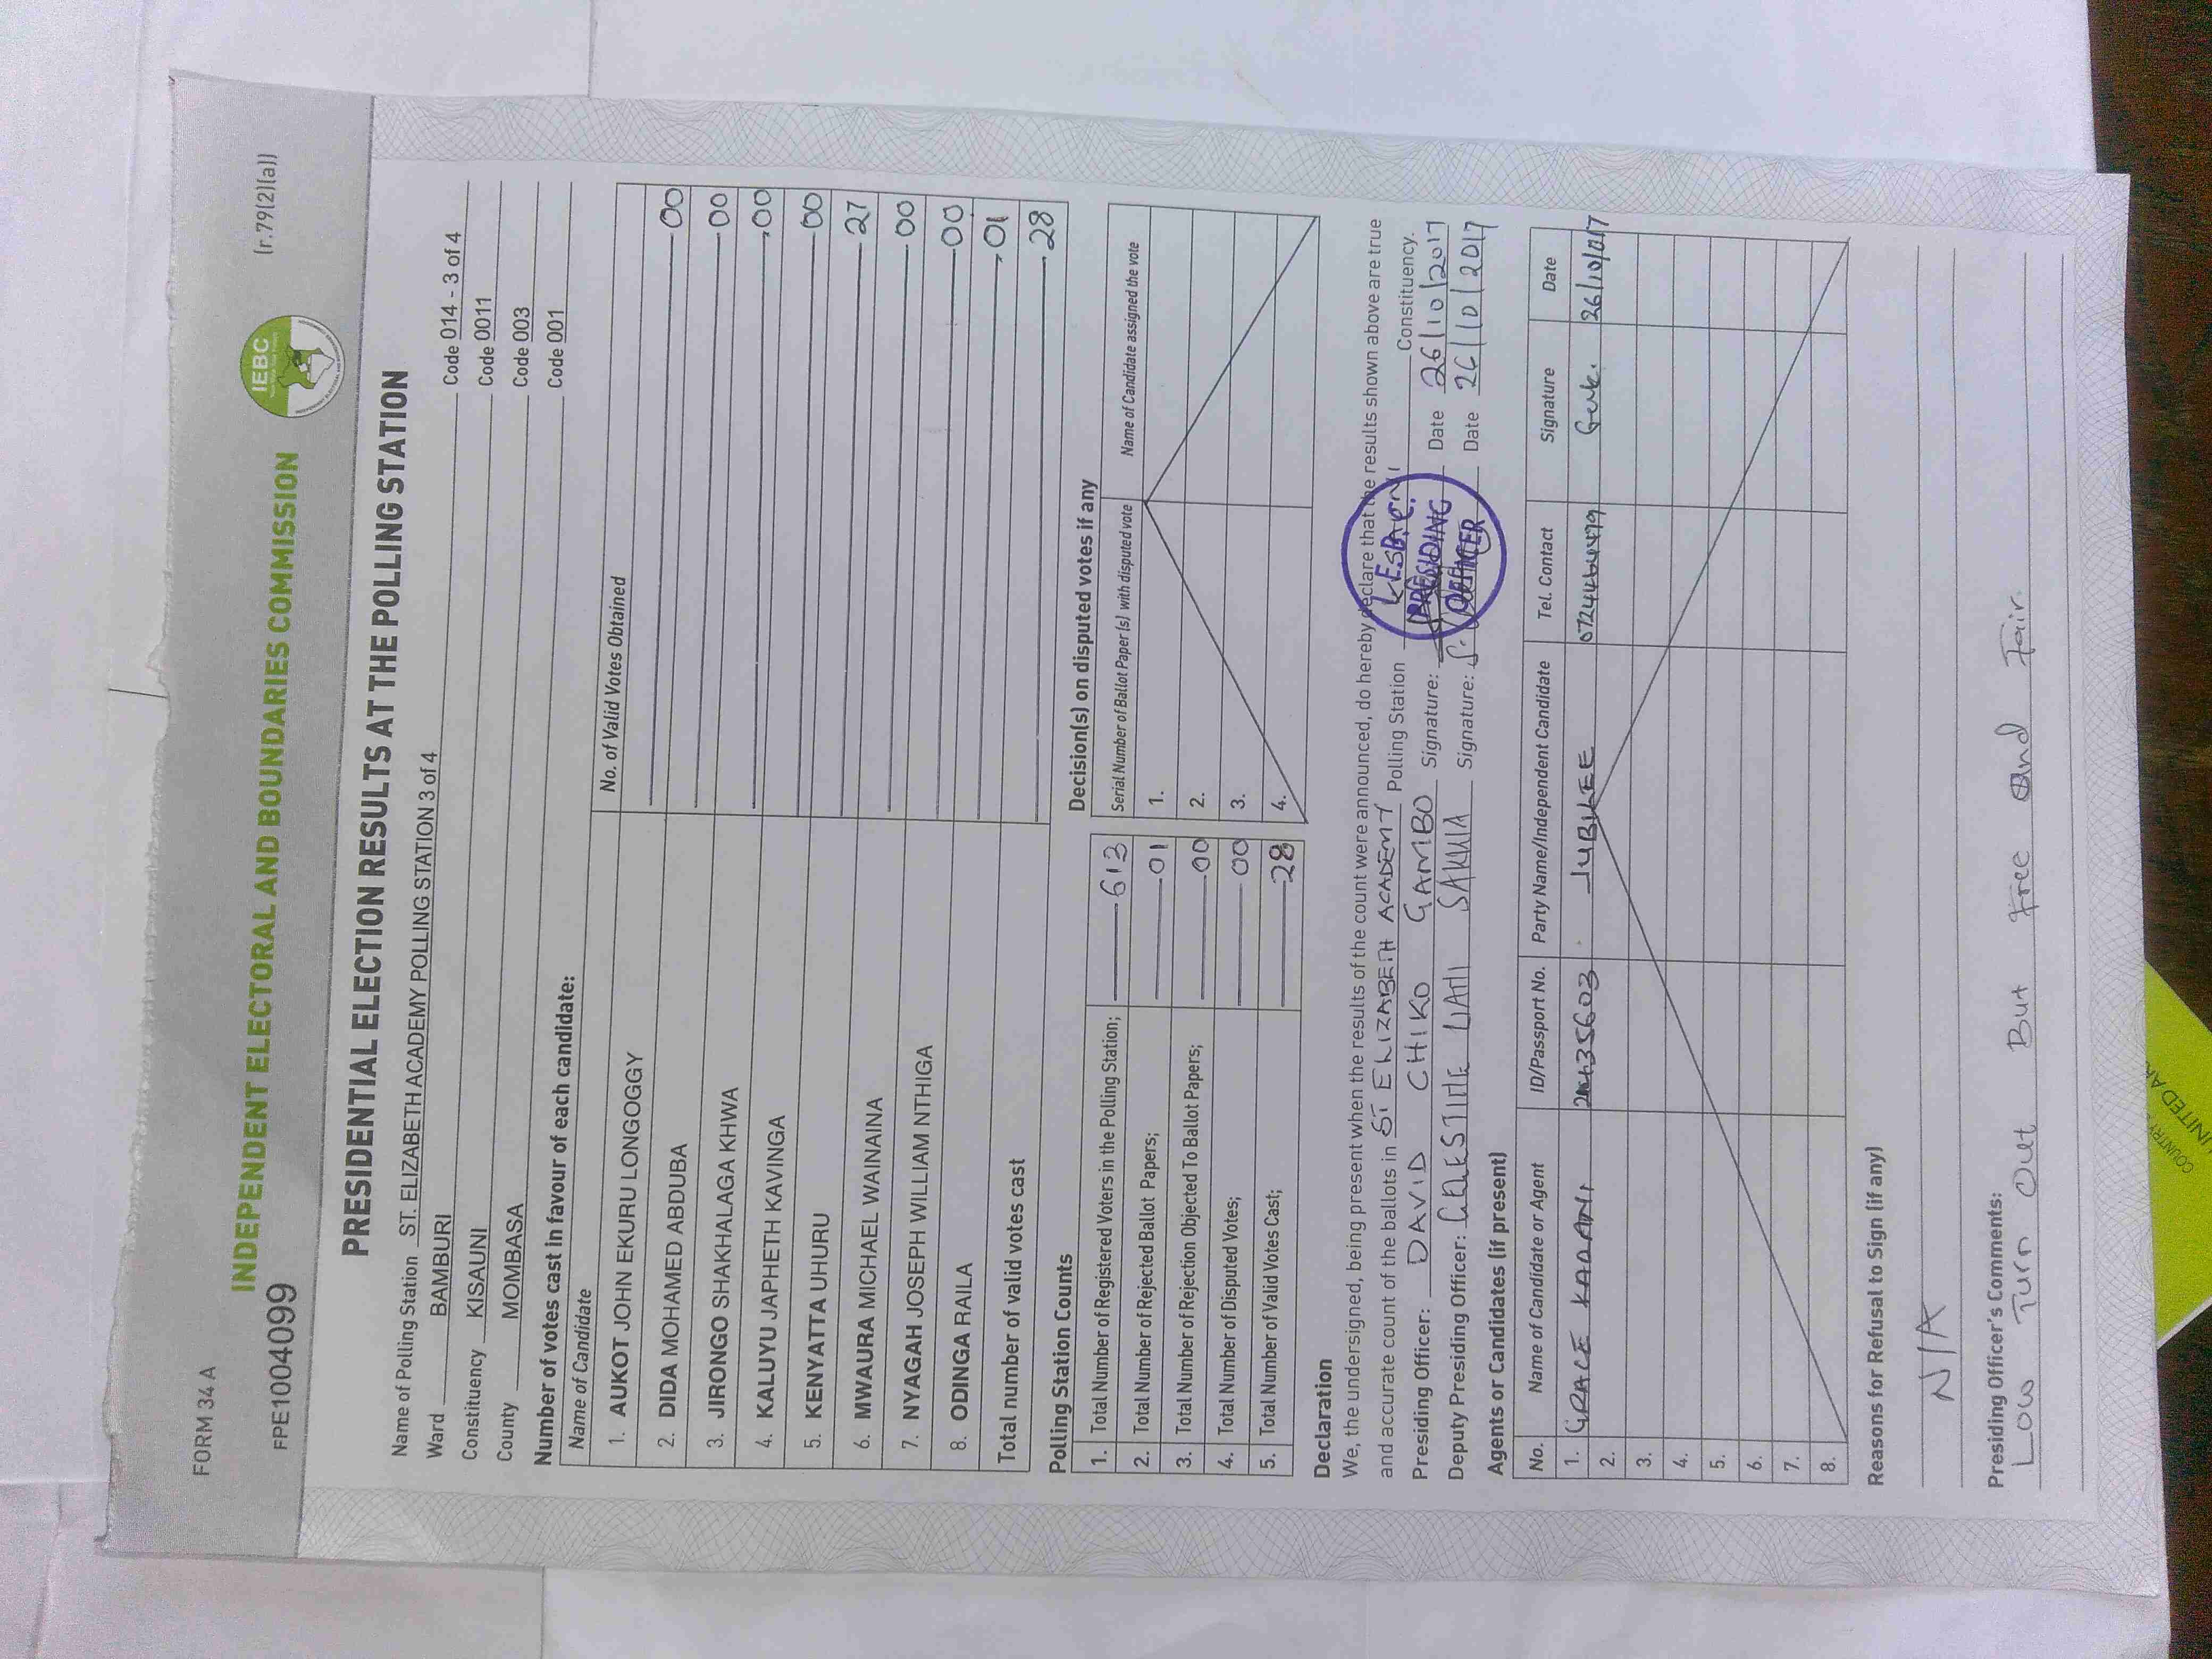 FORM 34 A
INDEPENDENT ELECTORAL AND BOUNDARIES COMMISSION
IEBC
(r.79(2)(a))
FPE1004099
PRESIDENTIAL ELECTION RESULTS AT THE POLLING STATION
Name of Polling Station ST. ELIZABETH ACADEMY POLLING STATION 3 of 4 Code 014 - 3 of 4
Ward BAMBURI Code 0011
Constituency KISAUNI Code 003
County MOMBASA Code 001
Number of votes cast in favour of each candidate:
Name of Candidate No. of Valid Votes Obtained
1. AUKOT JOHN EKURU LONGOGGY 00
2. DIDA MOHAMED ABDUBA 00
3. JIRONGO SHAKHALAGA KHWA 00
4. KALUYU JAPHETH KAVINGA 00
5. KENYATTA UHURU 27
6. MWAURA MICHAEL WAINAINA 00
7. NYAGAH JOSEPH WILLIAM NTHIGA 00
8. ODINGA RAILA 01
Total number of valid votes cast 28
Polling Station Counts
1. Total Number of Registered Voters in the Polling Station; 613
2. Total Number of Rejected Ballot Papers; 01
3. Total Number of Rejection Objected To Ballot Papers; 00
4. Total Number of Disputed Votes; 00
5. Total Number of Valid Votes Cast; 28
Decision(s) on disputed votes if any
Serial Number of Ballot Paper(s) with disputed vote Name of Candidate assigned the vote
1.
2.
3.
4.
Declaration
We, the undersigned, being present when the results of the count were announced, do hereby declare that the results shown above are true
and accurate count of the ballots in ST ELIZABETH ACADEMY Polling Station Constituency.
Presiding Officer: DAVID CHIKO GAMBO Signature: Date 26/10/2017
Deputy Presiding Officer: Signature: Date 26/10/2017
PRESIDING
OFFICER
Agents or Candidates (if present)
No. Name of Candidate or Agent ID/Passport No. Party Name/Independent Candidate Tel. Contact Signature Date
1. GRACE JUBILEE 26/10/017
2.
3.
4.
5.
6.
7.
8.
Reasons for Refusal to Sign (if any)
N/A
Presiding Officer's Comments:
Low Turn Out But Free and Fair.
COUNTRY
UNITED AR